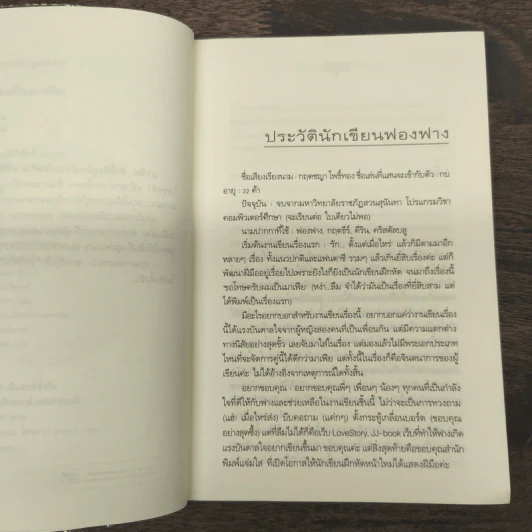 ประวัตินักเขียนฟองฟาง
ชื่อเสียงเรียงนาม : กฤตชญา โพธิ์ทอง ชื่อเล่นที่แสนจะเข้ากับตัว : กบ
อายุ : 22 ค้า
ปัจจุบัน : จบจากมหาวิทยาลัยราชภัฏสวนสุนันทา โปรแกรมวิชา
คอมพิวเตอร์ศึกษา (จะเรียนต่อ ใบเดียวไม่พอ)
นามปากกาที่ใช้ : ฟองฟาง, กฤตชีร์, คีริน, คริสตัลบลู
เริ่มต้นงานเขียนเรื่องแรก : รัก... ตั้งแต่เมื่อไหร่ แล้วก็มีตามมาอีก
หลายๆ เรื่อง ทั้งแนวปกติและแฟนตาซี รวมๆ แล้วเกินยี่สิบเรื่องค่ะ แต่ก็
พัฒนาฝีมืออยู่เรื่อยไปเพราะยังไงก็ยังเป็นนักเขียนฝึกหัด จนมาถึงเรื่องนี้
'ขอโทษครับผมเป็นมาเฟีย' (หง่า..ลืม จำได้ว่ามันเป็นเรื่องที่ยี่สิบสาม แต่
ได้พิมพ์เป็นเรื่องแรก)
มีอะไรอยากบอกสำหรับงานเขียนเรื่องนี้ : อยากบอกแค่ว่างานเขียนเรื่อง
นี้ได้แรงบันดาลใจจากผู้หญิงสองคนที่เป็นเพื่อนกัน แต่มีความแตกต่าง
ทางนิสัยอย่างสุดขั้ว เลยจับมาใส่ในเรื่อง แต่มองแล้วไม่มีพระเอกประเภท
ไหนที่จะจัดการคู่นี้ได้ดีกว่ามาเฟีย แต่ทั้งนี้ในเรื่องก็คือจินตนาการของผู้
เขียนค่ะ ไม่ได้อ้างอิงจากเหตุการณ์ใดทั้งสิ้น
อยากขอบคุณ : อยากขอบคุณพี่ๆ เพื่อนๆ น้องๆ ทุกคนที่เป็นกำลัง
ใจที่ดีให้กับฟางและช่วยเหลือในงานเขียนชิ้นนี้ ไม่ว่าจะเป็นการทวงถาม
(แฮ่! เมื่อไหร่ส่ง) บีบคอถาม (แค่กๆ) ตั้งกระทู้เกลื่อนบอร์ด (ขอบคุณ
อย่างสุดซึ้ง) แต่ที่ลืมไม่ได้ก็คือเว็บ LoveStory, JJ-book เว็บที่ทำให้ฟางเกิด
แรงบันดาลใจอยากเขียนขึ้นมา ขอบคุณค่ะ แต่สิ่งสุดท้ายคือขอบคุณสำนัก
พิมพ์แจ่มใส ที่เปิดโอกาสให้นักเขียนฝึกหัดหน้าใหม่ได้แสดงฝีมือค่ะ